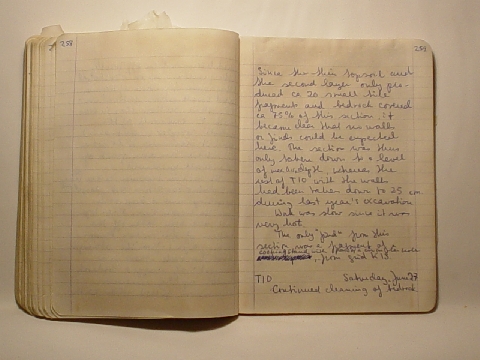 258
259
Since the thin topsoil and
the second layer only pro-
duced ca 20 small tile
fragments and bedrock covered
ca 75% of this section, it
became clear that no walls
or finds could be expected
here. The section was thus
only taken down to a level
of depth, whereas the
rest of T10 with the walls
had been taken down to 25 cm
during last year's excavation.
Work was slow since it was
very hot.
The only "find" from this
section was a fragment of
, from grid K13
T10 Saturday, June 27
Continued cleaning of bedrock